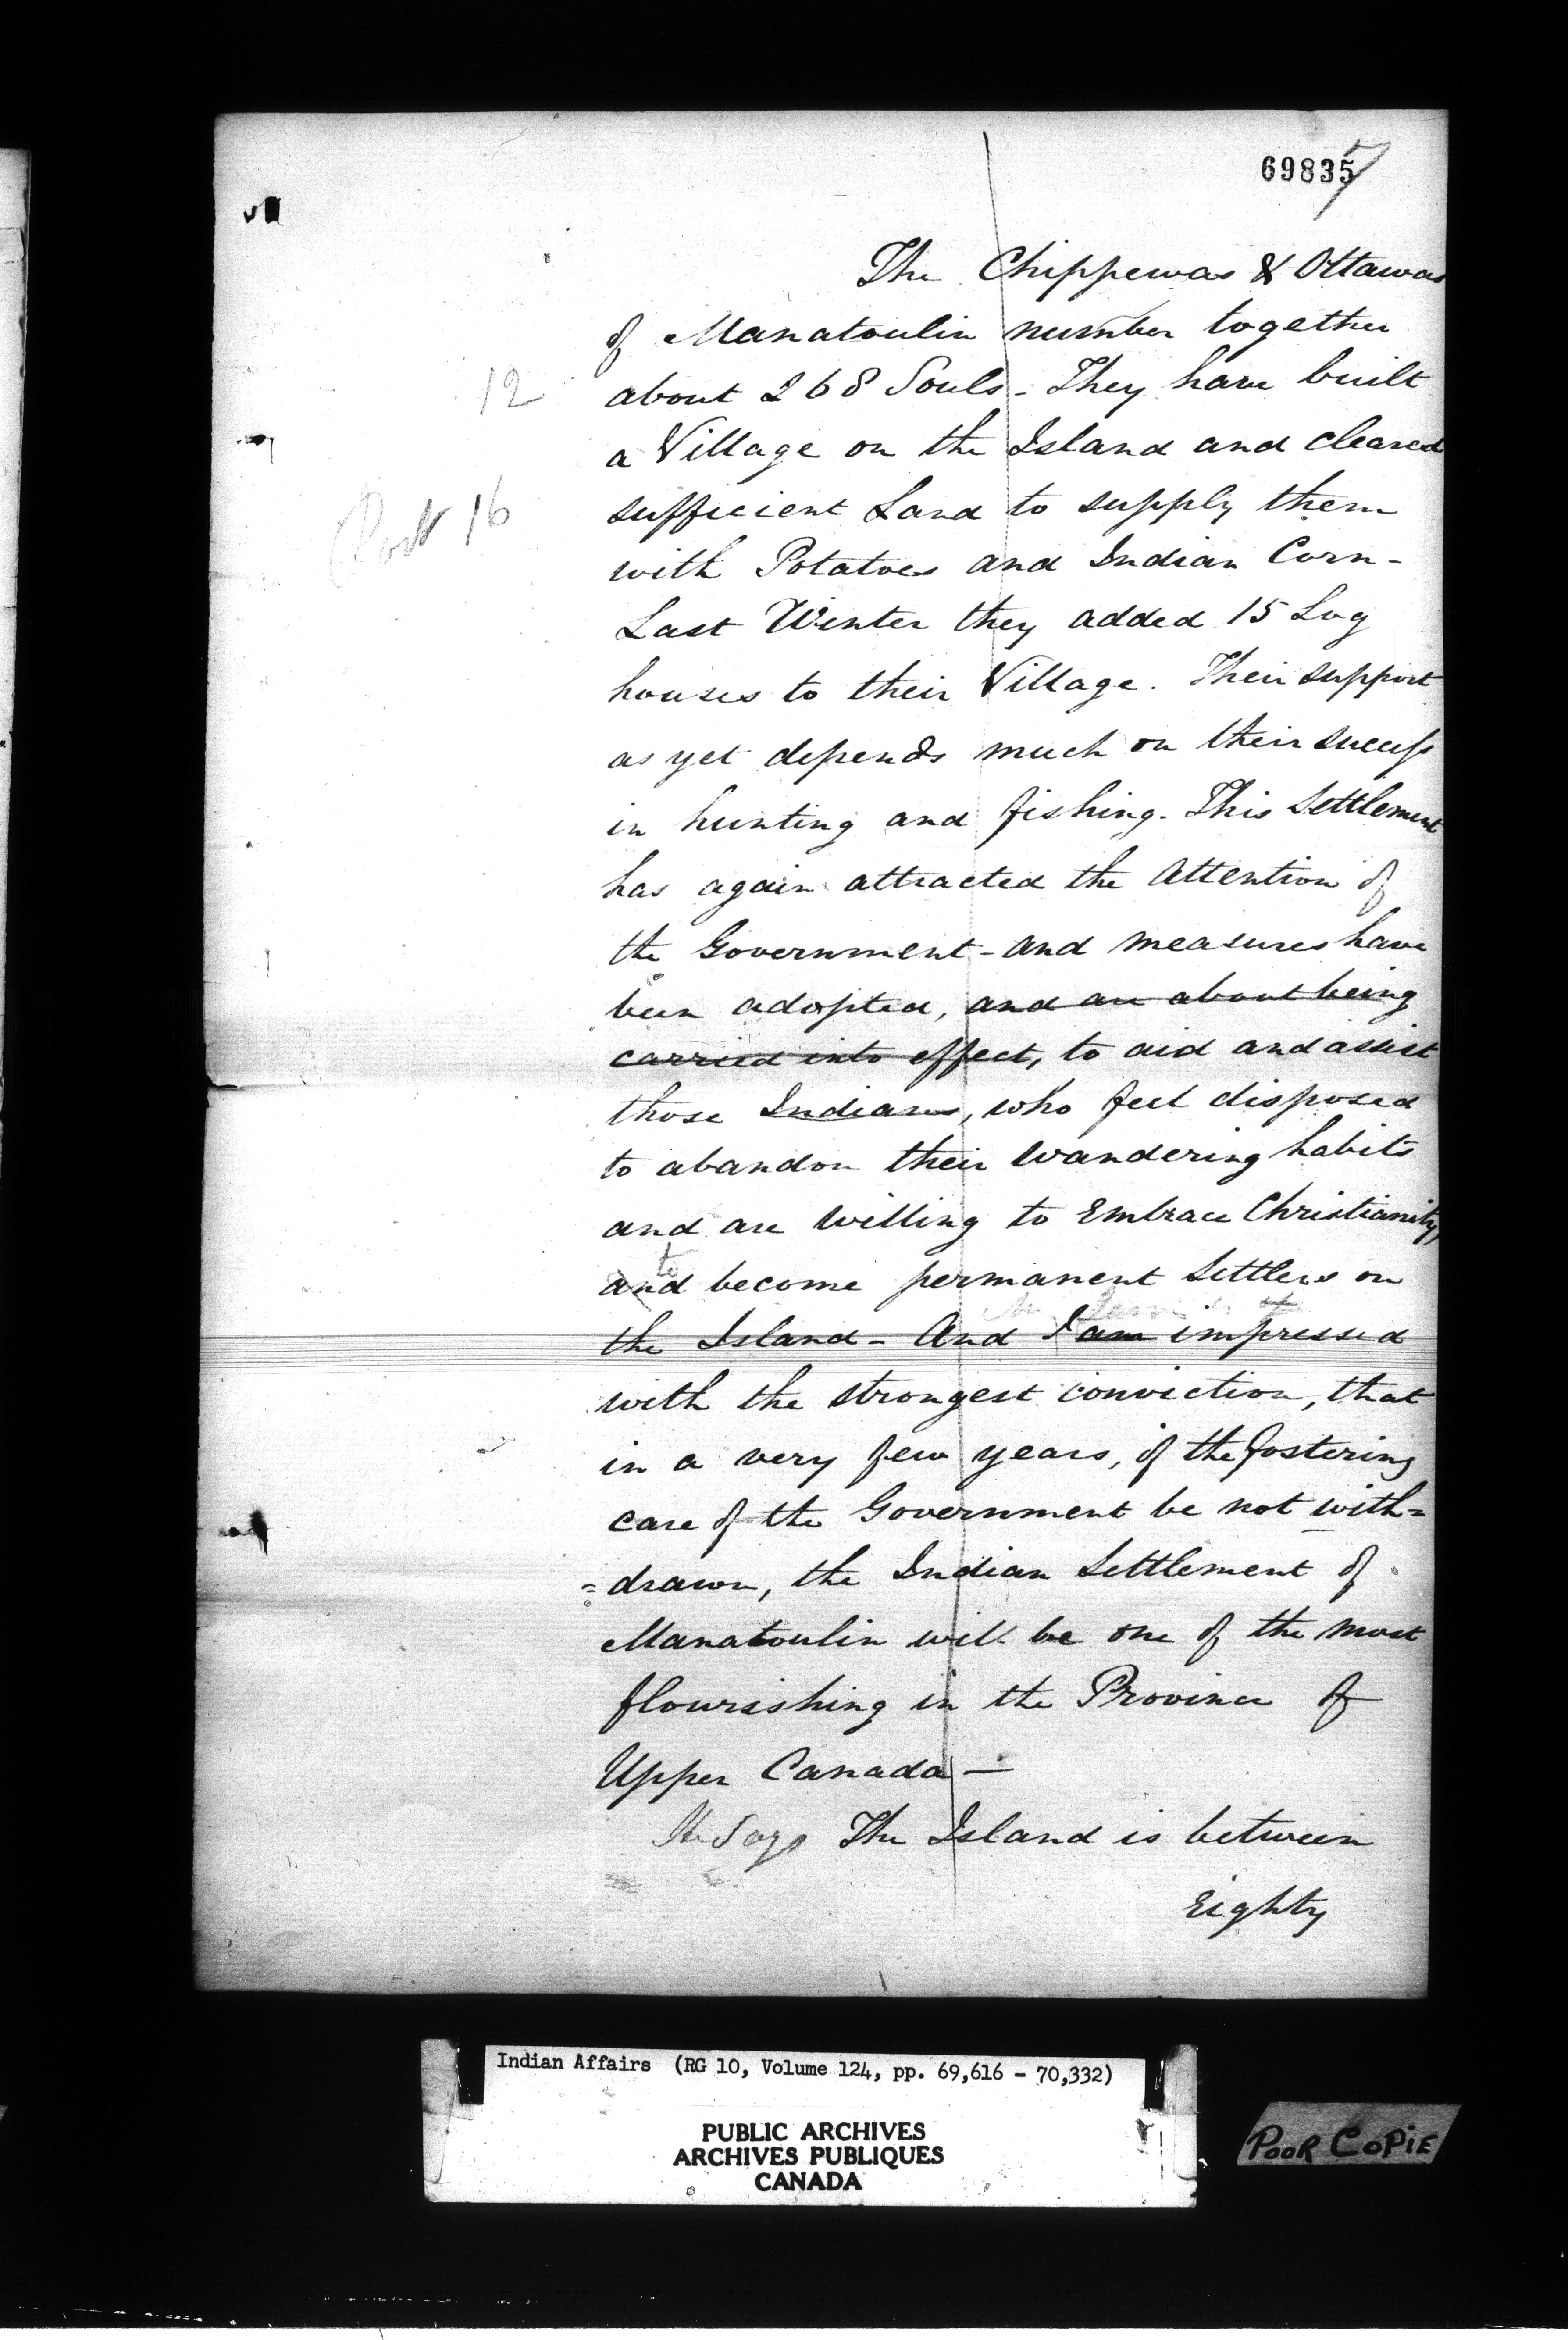 69835
7
The Chippewas & Ottawas
of Manatoulin number together
12
about 268 Souls - They have built
a Village on the Island and cleared
16
sufficient Land to supply them
with Potatoes and Indian Corn -
Last Winter they added 15 Log
houses to their Village. Their support
as yet depends much on their success
in hunting and fishing. This Settlement
has again attracted the Attention of
the Government - and measures have
been adopted, and are about being
carried into effect, to aid and assist
those Indians, who feel disposed
to abandon their wandering habits
and are willing to Embrace Christianity,
to
and become permanent Settlers on
the Island - And I am impressed
with the strongest conviction, that
in a very few years, if the fostering
care of the Government be not with=
=drawn, the Indian Settlement of
Manatoulin will be one of the most
flourishing in the Province of
Upper Canada -
He Says The Island is between
Eighty
Indian Affairs (RG 10, Volume 124, pp. 69,616 - 70,332)
PUBLIC ARCHIVES
ARCHIVES PUBLIQUES
CANADA
POOR COPIE